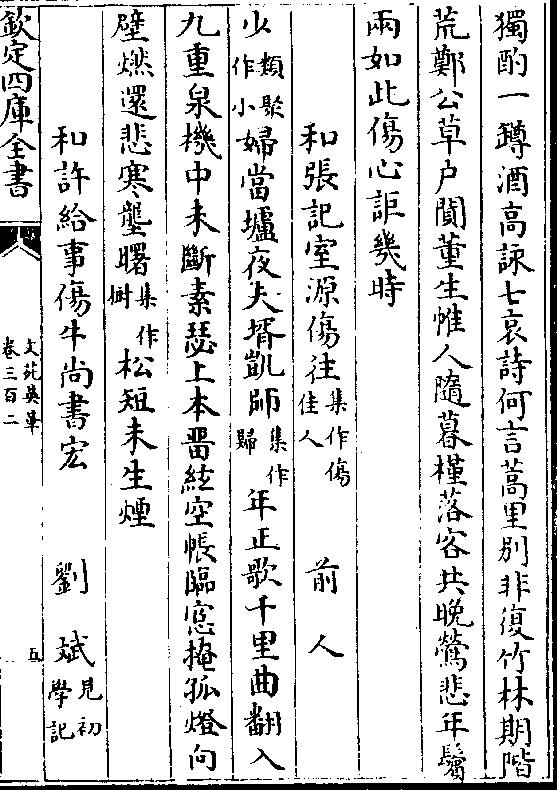 獨酌一罇酒高詠七哀詩何言蒿里别非復竹林期階
荒鄭公草户閴董生帷人隨暮槿落客共晚鶯悲年鬢
兩如此傷心詎幾時
和張記室源傷往集作傷佳人 前人
少類聚作小婦當壚夜夫壻凱師集作歸年正歌千里曲翻入
九重泉機中未斷素瑟上本留絃空帳臨窓掩孤燈向
壁燃還悲寒壟曙集作樹松短未生煙
和許給事傷牛尚書宏 劉斌見初學記
欽定四庫全書
文苑英華
卷三百二
五